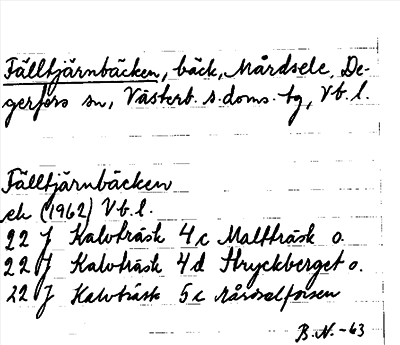 Fälltjärnbäcken, bäck, Mårdsele, De-
gerfors sn, Västerb. s. doms. tg, Vb. l.
Fälltjärnbäcken
ek (1962) Vb. l.
22 J Kalvträsk 4c Maltträsk o.
22 J Kalvträsk 4d Stryckberget o.
22 J Kalvträsk 5c Mårdselforsen
B.N. -63